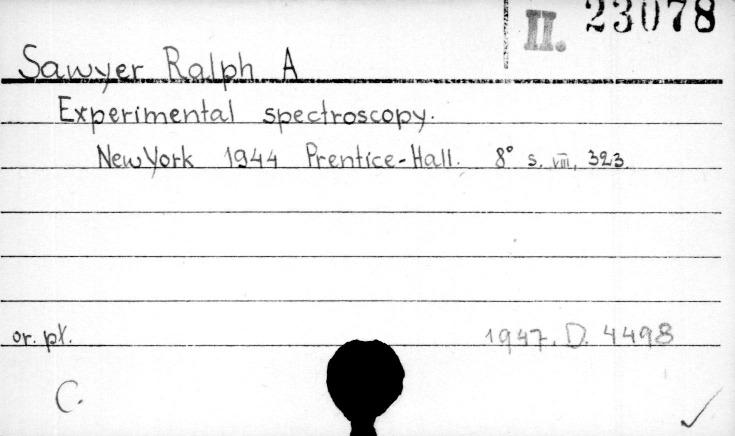 II. 23078
Sawyer Ralph A
Experimental spectroscopy.
New York 1944 Prentice-Hall. 8° s. VIII, 323.
or. pł. 1947. D. 4498
C.